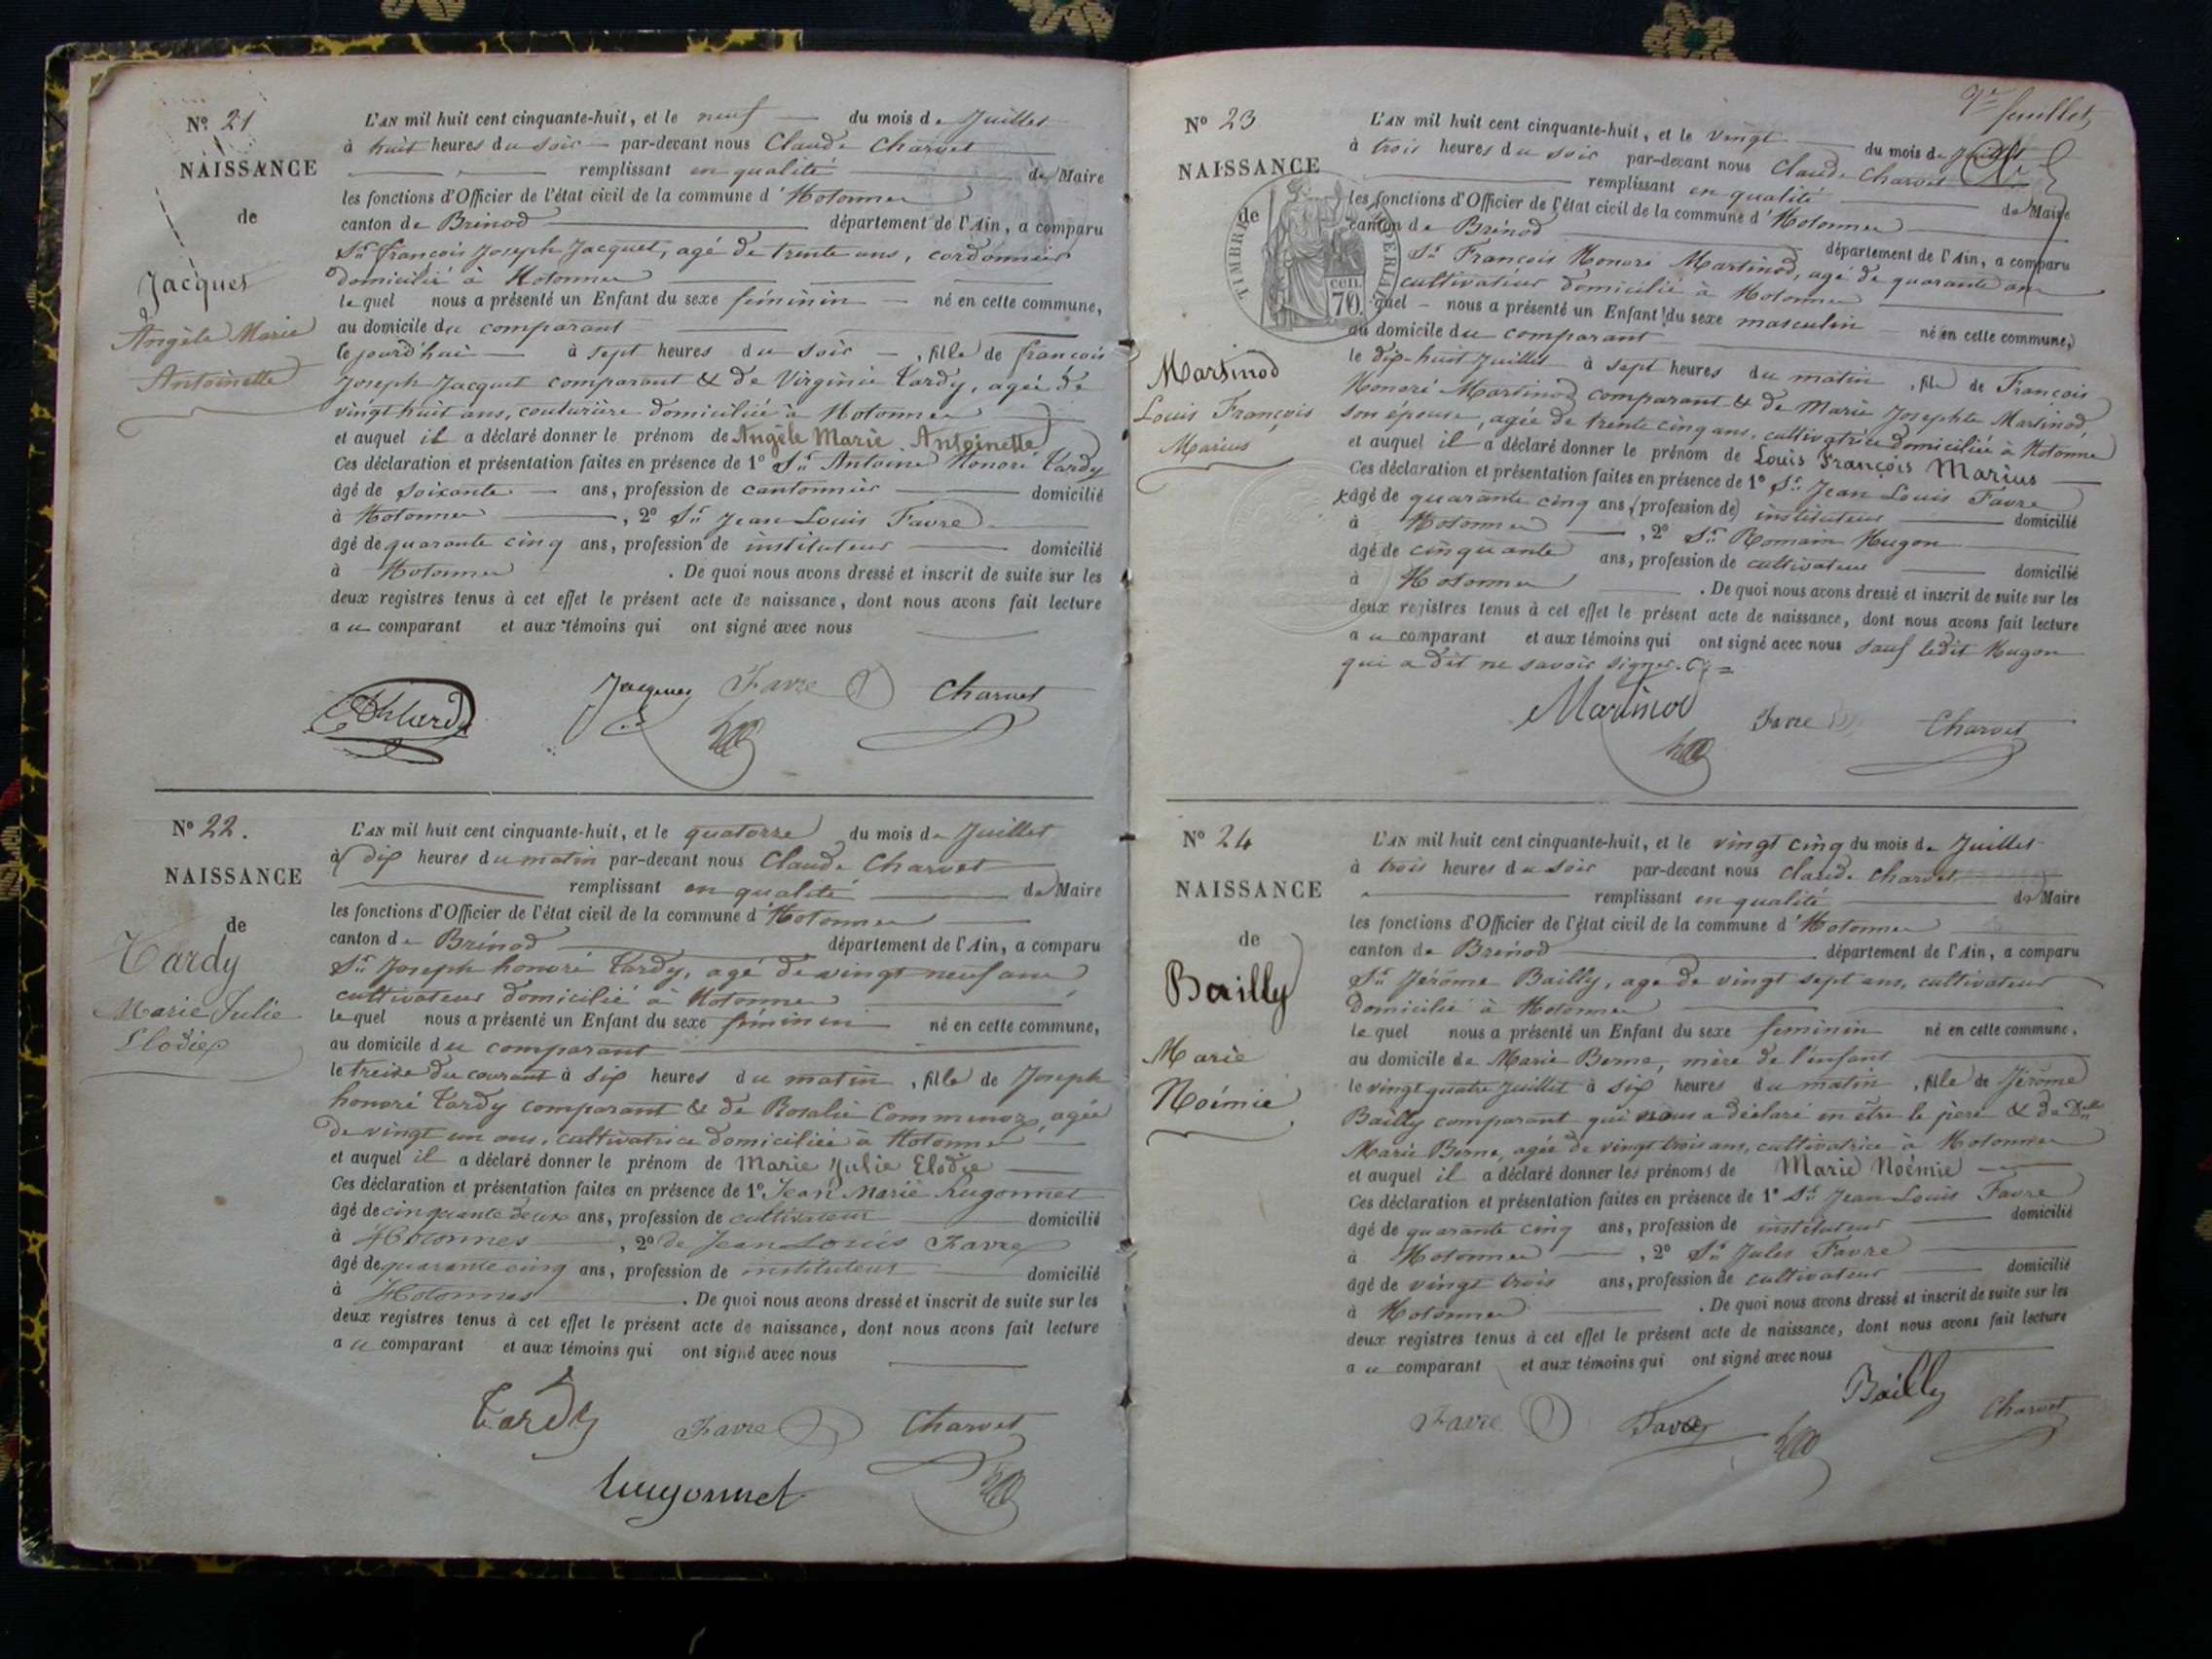 N° 21
NAISSANCE
de
Jacquet
Angèle Marie
Antoinette
L'AN mil huit cent cinquante-huit, et le neuf du mois de Juillet
à huit heures du soir par-devant nous Claude Charvet
remplissant en qualité de Maire
les fonctions d'Officier de l'état civil de la commune d'Hotonnes
canton de Brénod département de l'Ain, a comparu
Sr. françois Joseph Jacquet, agé de trente ans, cordonnier
domicilié à Hotonnes
lequel nous a présenté un Enfant du sexe féminin né en cette commune,
au domicile du comparant
cejourd'hui à sept heures du soir, fille de françois
Joseph Jacquet comparant & de Virginie Tardy, agée de
vingt huit ans, couturière domiciliée à Hotonnes
et auquel il a déclaré donner le prénom de Angèle Marie Antoinette
Ces déclaration et présentation faites en présence de 1° Sr. Antoine Honoré Tardy
âgé de soixante ans, profession de cantonnier domicilié
à Hotonnes, 2° Sr. Jean Louis Favre
âgé de quarante cinq ans, profession de instituteur domicilié
à Hotonnes. De quoi nous avons dressé et inscrit de suite sur les
deux registres tenus à cet effet le présent acte de naissance, dont nous avons fait lecture
au comparant et aux témoins qui ont signé avec nous
Jacquet Favre Charvet
N° 22.
NAISSANCE
de
Tardy
Marie Julie
Elodie
L'AN mil huit cent cinquante-huit, et le quatorze du mois de Juillet
à dix heures du matin par-devant nous Claude Charvet
remplissant en qualité de Maire
les fonctions d'Officier de l'état civil de la commune d'Hotonnes
canton de Brénod département de l'Ain, a comparu
Sr. Joseph honoré Tardy, agé de vingt neuf ans
cultivateur domicilié à Hotonnes
lequel nous a présenté un Enfant du sexe féminin né en cette commune,
au domicile du comparant
le treize du courant à six heures du matin, fille de Joseph
honoré Tardy comparant & de Rosalie Commenoz, agée
de vingt un ans, cultivatrice domiciliée à Hotonnes
et auquel il a déclaré donner le prénom de Marie Julie Elodie
Ces déclaration et présentation faites en présence de 1° Jean Marie hugonnet
âgé de cinquante deux ans, profession de cultivateur domicilié
à Hotonnes, 2° de Jean Louis Favre
âgé de quarante cinq ans, profession de instituteur domicilié
à Hotonnes. De quoi nous avons dressé et inscrit de suite sur les
deux registres tenus à cet effet le présent acte de naissance, dont nous avons fait lecture
au comparant et aux témoins qui ont signé avec nous
Tardy Favre Charvet
hugonnet
feuillet
N° 23
NAISSANCE
de
TIMBRE IMPERIAL
70. cen.
Martinod
Louis François
Marius
L'AN mil huit cent cinquante-huit, et le vingt du mois de Juillet
à trois heures du soir par-devant nous Claude Charvet
remplissant en qualité de Maire
les fonctions d'Officier de l'état civil de la commune d'Hotonnes
canton de Brénod département de l'Ain, a comparu
Sr. François Honoré Martinod, agé de quarante ans
cultivateur domicilié à Hotonnes
quel nous a présenté un Enfant du sexe masculin né en cette commune,
au domicile du comparant
le dix-huit Juillet à sept heures du matin, fils de François
Honoré Martinod comparant & de Marie Josephte Martinod
son épouse, agée de trente cinq ans, cultivatrice domiciliée à Hotonnes
et auquel il a déclaré donner le prénom de Louis François Marius
Ces déclaration et présentation faites en présence de 1° Sr. Jean Louis Favre
âgé de quarante cinq ans, (profession de) instituteur domicilié
à Hotonnes, 2° Sr. Romain Hugon
âgé de cinquante ans, profession de cultivateur domicilié
à Hotonnes. De quoi nous avons dressé et inscrit de suite sur les
deux registres tenus à cet effet le présent acte de naissance, dont nous avons fait lecture
au comparant et aux témoins qui ont signé avec nous sauf ledit Hugon
qui a dit ne savoir signer.
Martinod Favre Charvet
N° 24
NAISSANCE
de
Bailly
Marie
Noémie
L'AN mil huit cent cinquante-huit, et le vingt cinq du mois de Juillet
à trois heures du soir par-devant nous Claude Charvet
remplissant en qualité de Maire
les fonctions d'Officier de l'état civil de la commune d'Hotonnes
canton de Brénod département de l'Ain, a comparu
Sr. Jérôme Bailly, age de vingt sept ans, cultivateur
domicilié à Hotonnes
lequel nous a présenté un Enfant du sexe feminin né en cette commune,
au domicile de Marie Berne, mère de l'enfant
le vingt quatre Juillet à six heures du matin, fille de Jérôme
Bailly comparant qui nous a déclaré en être le père & de Dlle
Marie Berne, agée de vingt trois ans, cultivatrice à Hotonnes
et auquel il a déclaré donner les prénoms de Marie Noémie
Ces déclaration et présentation faites en présence de 1° Sr. Jean Louis Favre
âgé de quarante cinq ans, profession de instituteur domicilié
à Hotonnes, 2° Sr. Jules Favre
âgé de vingt trois ans, profession de cultivateur domicilié
à Hotonnes. De quoi nous avons dressé et inscrit de suite sur les
deux registres tenus à cet effet le présent acte de naissance, dont nous avons fait lecture
au comparant et aux témoins qui ont signé avec nous
Favre Favre Bailly Charvet